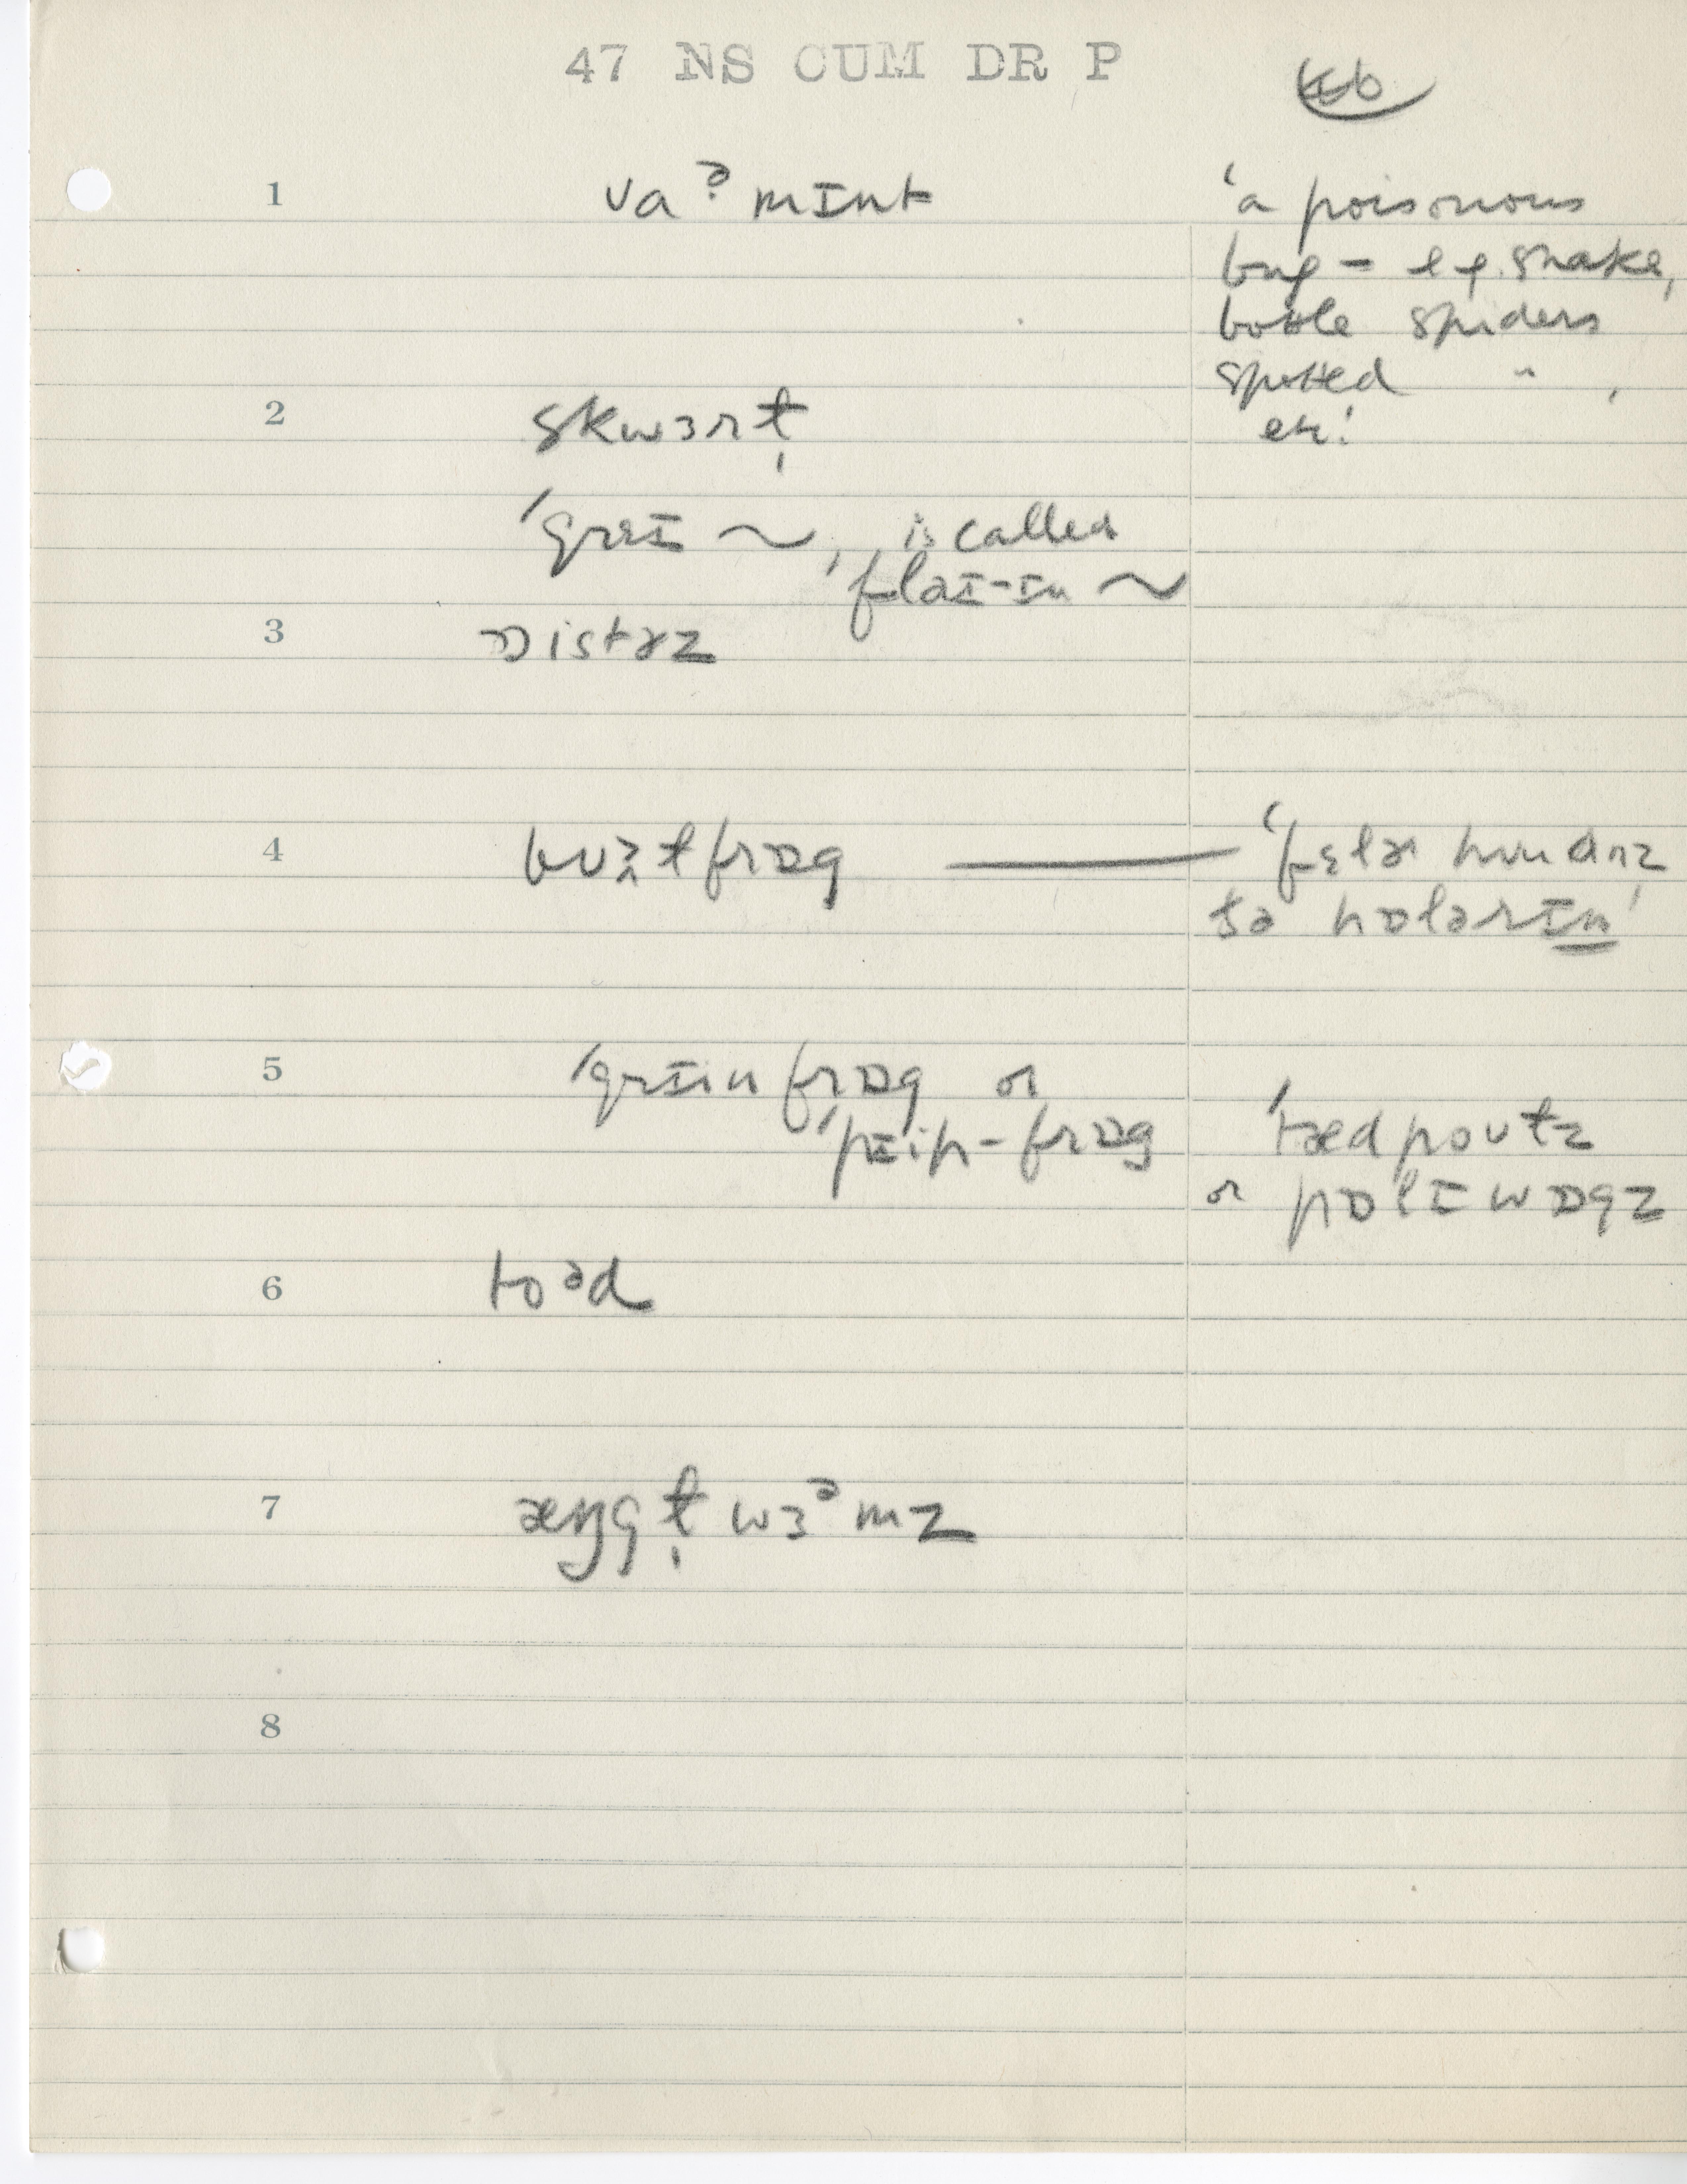 47 NS CUM DR P
1 vaˀmɪnt 'a poisonous
bug - e.g. snake,
bottle spiders
spotted " ,
etc.'
2 skwɜrɫ̩
ˈgreɪ ~, is called
ˈflaɪ-ɪn ~
3 ɒistɚz
4 bʊɫfrɒg —
tə hɒlərɪn'
5 ˈgrɪin frɒg or
ˈpɪip-frɒg ˈtædpoʊɫz
or pɒlɪwɒgz
6 toᵊd
7 æŋgɫ̩wɜᵊmz
8